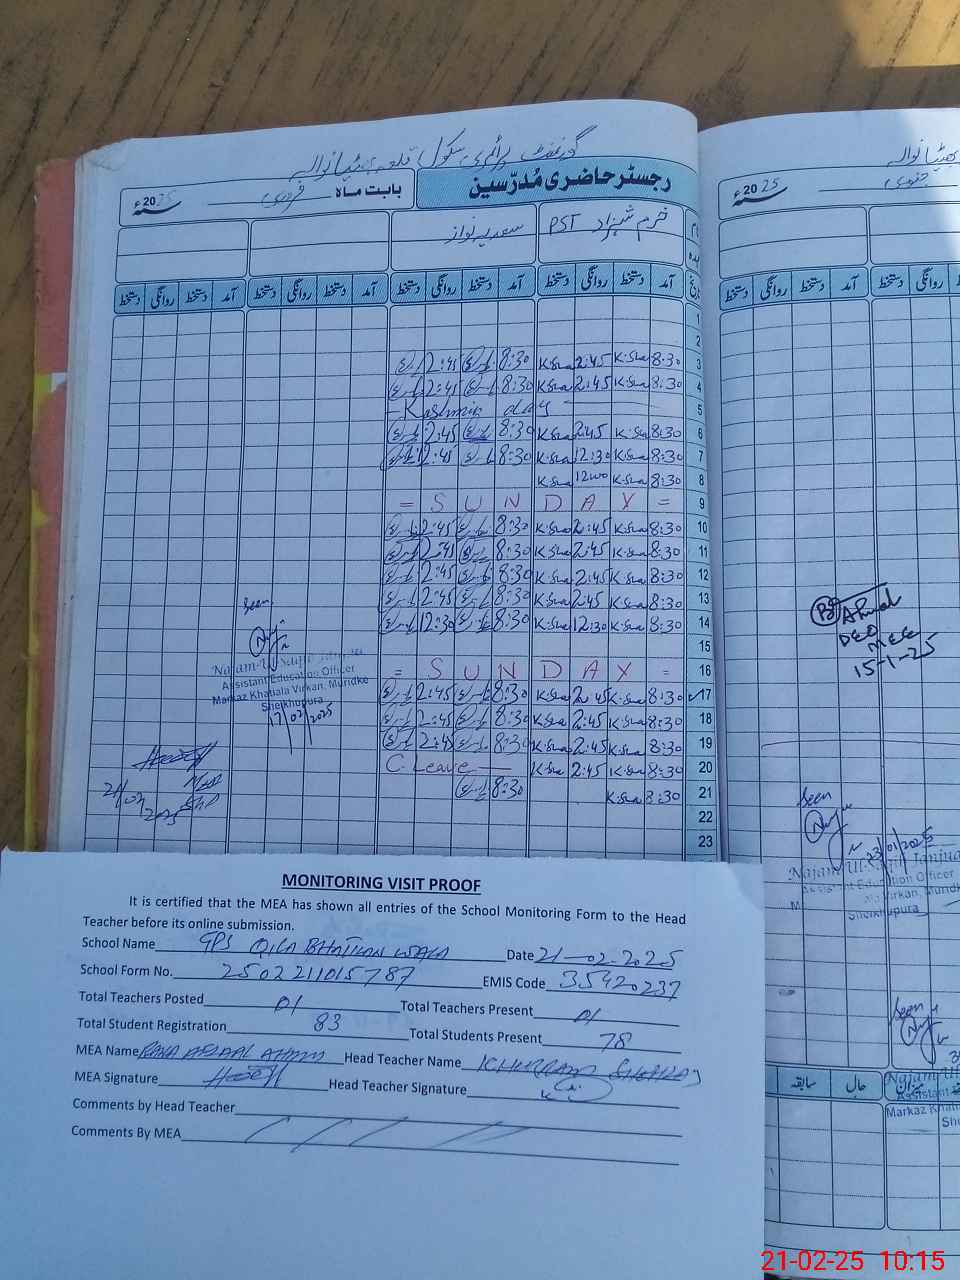 گورنمنٹ پرائمری سکول قلعہ بھٹیانوالہ
رجسٹر حاضری مُدرّسین
بابت ماہ فروری
2025ء
خرم شہزاد PST
سعدیہ نواز
آمد دستخط روانگی دستخط آمد دستخط روانگی دستخط آمد دستخط روانگی دستخط آمد دستخط روانگی دستخط
1
2
3 8:30 K.Sha 2:45 K.Sha 8:30 2:45
4 8:30 K.Sha 2:45 K.Sha 8:30 2:45
5 - Kashmir day -
6 8:30 K.Sha 2:45 K.Sha 8:30 2:45
7 8:30 K.Sha 12:30 K.Sha 8:30 2:45
8 8:30 K.Sha 1200 K.Sha
9 = S U N D A Y =
10 8:30 K.Sha 2:45 K.Sha 8:30 2:45
11 8:30 K.Sha 2:45 K.Sha 8:30 2:45
12 8:30 K.Sha 2:45 K.Sha 8:30 2:45
13 8:30 K.Sha 2:45 K.Sha 8:30 2:45
14 8:30 K.Sha 12:30 K.Sha 8:30 12:30
15
16 = S U N D A Y =
17 8:30 K.Sha 2:45 K.Sha 8:30 2:45
18 8:30 K.Sha 2:45 K.Sha 8:30 2:45
19 8:30 K.Sha 2:45 K.Sha 8:30 2:45
20 8:30 K.Sha 2:45 K.Sha C. Leave
21 8:30 K.Sha 8:30
22
23
Seen
Najam-Ul-Saqib Janjua
Assistant Education Officer
Markaz Khatiala Virkan, Muridke
Sheikhupura
17/02/2025
21/02/2025
MONITORING VISIT PROOF
It is certified that the MEA has shown all entries of the School Monitoring Form to the Head
Teacher before its online submission.
School Name GPS QILA BHATIAN WALA Date 21-02-2025
School Form No. 2502211015787 EMIS Code 35420237
Total Teachers Posted 01 Total Teachers Present 01
Total Student Registration 83 Total Students Present 78
MEA Name RANA AFZAAL AHMAD Head Teacher Name KHURRAM SHEHZAD
MEA Signature Head Teacher Signature
Comments by Head Teacher
Comments By MEA
بھٹیانوالہ
2025ء جنوری
آمد دستخط روانگی دستخط
DEO
MEE
15-1-25
Seen
23/01/2025
Najam Ul-Saqib Janjua
Assistant Education Officer
Sheikhupura
Seen
Najam Ul
Assistant
Markaz Khat
She
میزان حال سابقہ
21-02-25 10:15